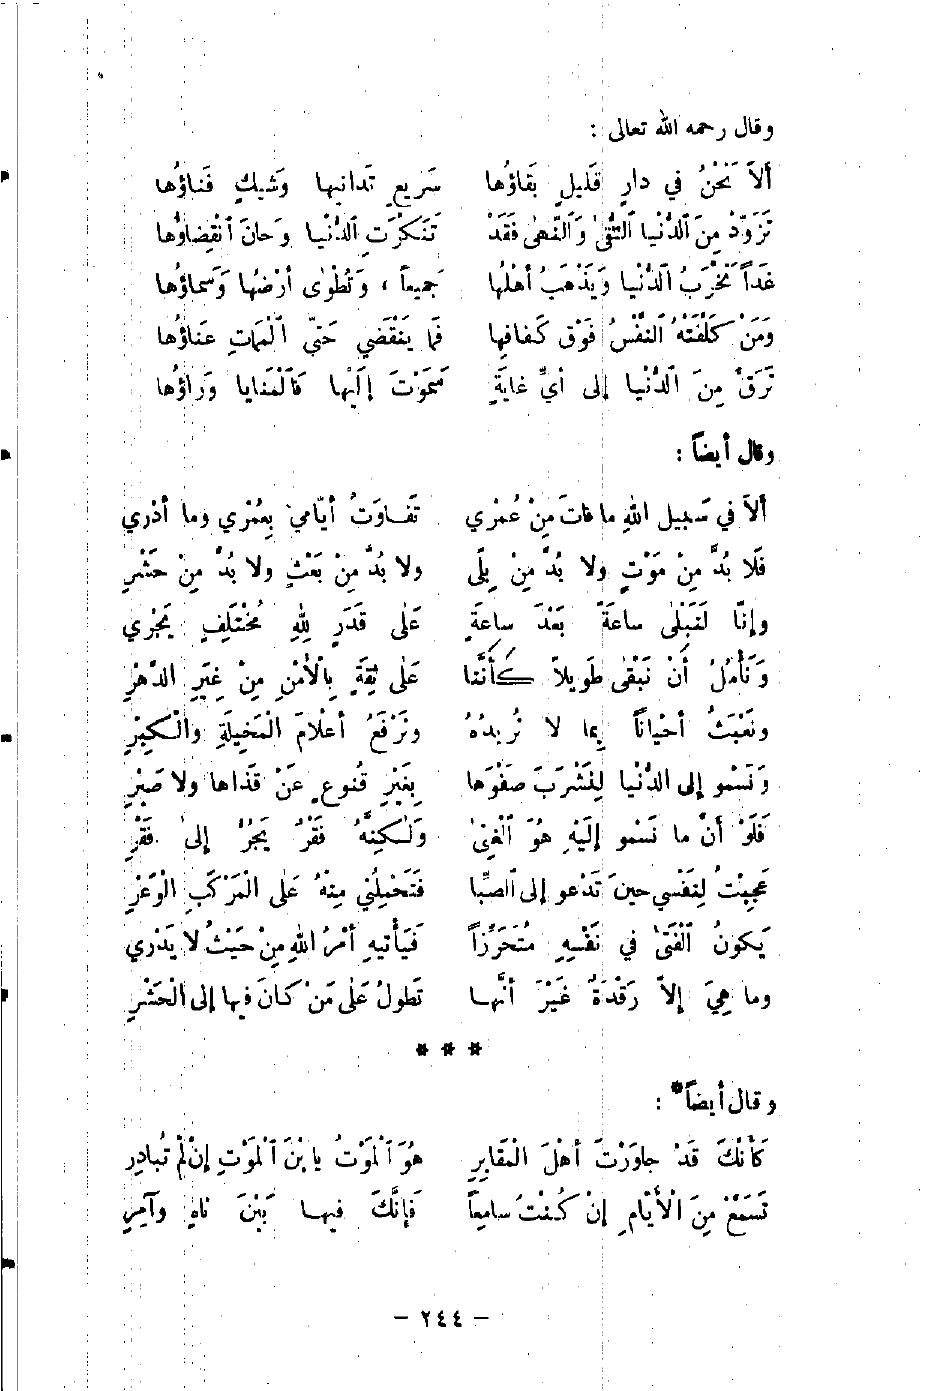 وقال رحمه الله تعالى :
ألاَ نَحْنُ في دارٍ قَليلٍ بَقاؤُها سَريعٍ تَدانيها وَشيكٍ فَناؤُها
تَزَوَّدْ مِنَ ٱلدُّنْيا ٱلتُّقىٰ وَٱلنُّهىٰ فَقَدْ تَنَكَّرَتِ ٱلدُّنْيا وَحانَ ٱنْقِضاؤُها
غَداً تَخْرَبُ ٱلدُّنْيا وَيَذْهَبُ أهْلُها جَميعاً ، وَتُطْوٰى أرْضُها وَسَماؤُها
وَمَنْ كَلَّفَتْهُ ٱلنَّفْسُ فَوْق كَفافِها فَما يَنْقَضي حَتّى ٱلْمَماتِ عَناؤُها
تَرَقَّ مِنَ ٱلدُّنْيا إلى أيِّ غايَةٍ سَمَوْتَ إلَيْها فَٱلْمَنايا وَراؤُها
وقال أيضاً :
ألاَ في سَبيلِ اللهِ ما فاتَ مِنْ عُمْري تَفاوَتُ أيّامي بِعُمْري وما أدْري
فَلا بُدَّ مِنْ مَوْتٍ ولا بُدَّ مِنْ بِلًى ولا بُدَّ مِنْ بَعْثٍ ولا بُدَّ مِنْ حَشْرِ
وإنّا لَنَبْلٰى ساعَةً بَعْدَ ساعَةٍ عَلٰى قَدَرٍ لِلّٰهِ مُخْتَلِفٍ يَجْري
وَنَأْمُلُ أنْ نَبْقٰى طَويلاً كَأنَّنا عَلٰى ثِقَةٍ بِالْأَمْنِ مِنْ غِيَرِ الدَّهْرِ
ونَعْبَثُ أحْياناً بِما لا نُريدُهُ ونَرْفَعُ أعْلامَ الْمَخيلَةِ والْكِبْرِ
وَنَسْمو إلى الدُّنْيا لِنَشْرَبَ صَفْوَها بِغَيْرِ قُنوعٍ عَنْ قَذاها ولا صَبْرِ
فَلَوْ أنَّ ما نَسْمو إلَيْهِ هُوَ ٱلْغِنىٰ وَلٰكِنَّهُ فَقْرٌ يَجُرُّ إلىٰ فَقْرِ
عَجِبْتُ لِنَفْسي حينَ تَدْعو إلى ٱلصِّبا فَتَحْمِلُني مِنْهُ عَلٰى الْمَرْكَبِ الْوَعْرِ
يَكونُ ٱلْفَتىٰ في نَفْسِهِ مُتَحَرِّزاً فَيَأْتيهِ أمْرُ اللهِ مِنْ حَيْثُ لا يَدْري
وما هِيَ إلاّ رَقْدَةٌ غَيْرَ أنَّها تَطولُ عَلٰى مَنْ كانَ فيها إلى الْحَشْرِ
* * *
وقال أيضاً* :
كَأنَّكَ قَدْ جاوَرْتَ أهْلَ الْمَقابِرِ هُوَ ٱلْمَوْتُ يا بْنَ ٱلْمَوْتِ إنْ لَمْ تُبادِرِ
تَسَمَّعْ مِنَ الْأَيّامِ إنْ كُنْتَ سامِعاً فَإنَّكَ فيها بَيْنَ ناهٍ وآمِرِ
– ٢٤٤ –